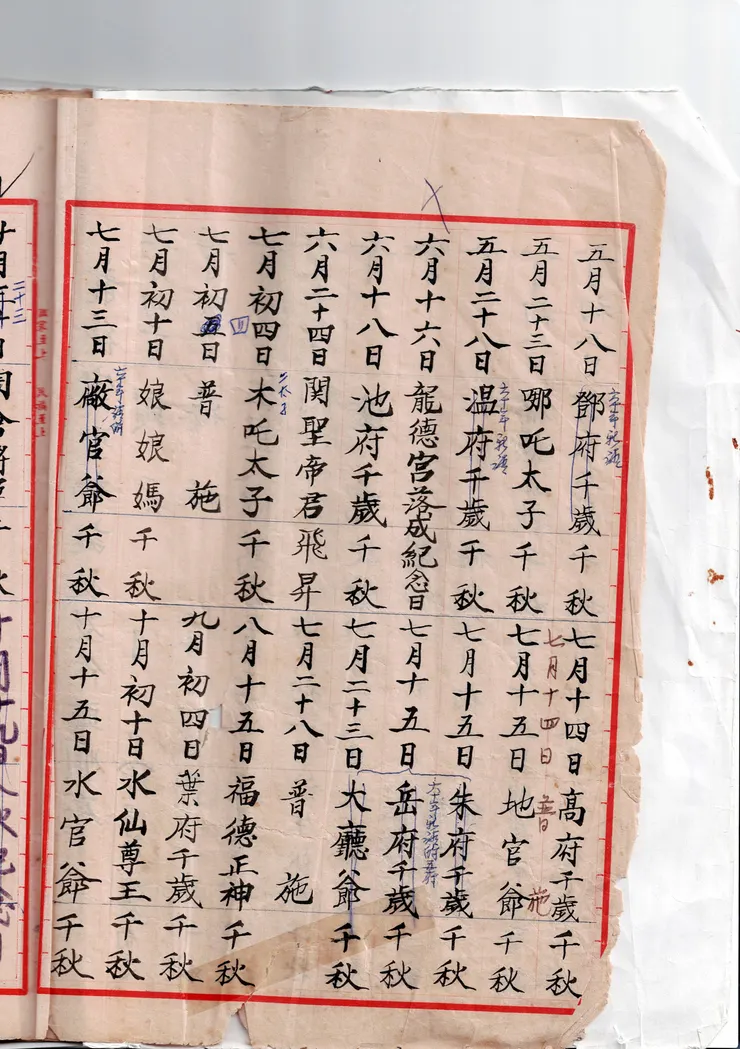 五月十八日 鄧府千歲千秋
五月二十三日 哪吒太子千秋
五月二十八日 温府千歲千秋
六月十六日 龍德宮落成紀念日
六月十八日 池府千歲千秋
六月二十四日 関聖帝君飛昇
七月初四日 木吒太子千秋
二太子
七月初五日 普施
四
七月初十日 娘娘媽千秋
七月十三日 廠官爺千秋
七月十四日 高府千歲千秋
七月十四日 普施
七月十五日 地官爺千秋
七月十五日 朱府千歲千秋
七月十五日 岳府千歲千秋
七月二十三日 大廳爺千秋
七月二十八日 普施
八月十五日 福德正神千秋
九月初四日 葉府千歲千秋
十月初十日 水仙尊王千秋
十月十五日 水官爺千秋
二十三